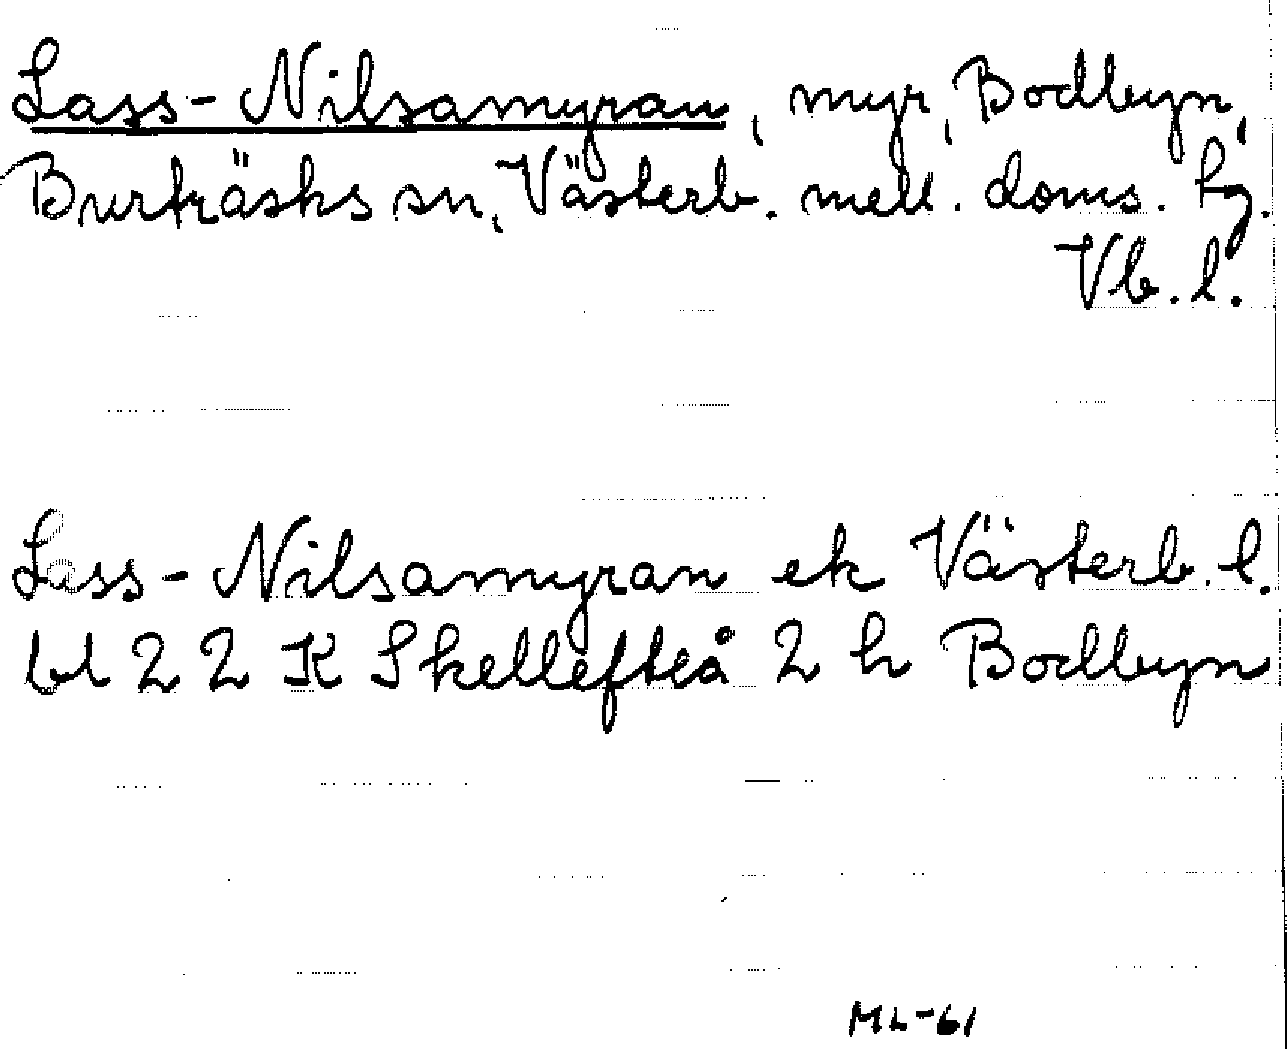 Lass-Nilsamyran, myr, Bodbyn,
Burträsks sn, Västerb. mell. doms. hg.
Vb. l.
Lass-Nilsamyran ek Västerb. l.
bl 22 K Skellefteå 2 h Bodbyn
ML-61